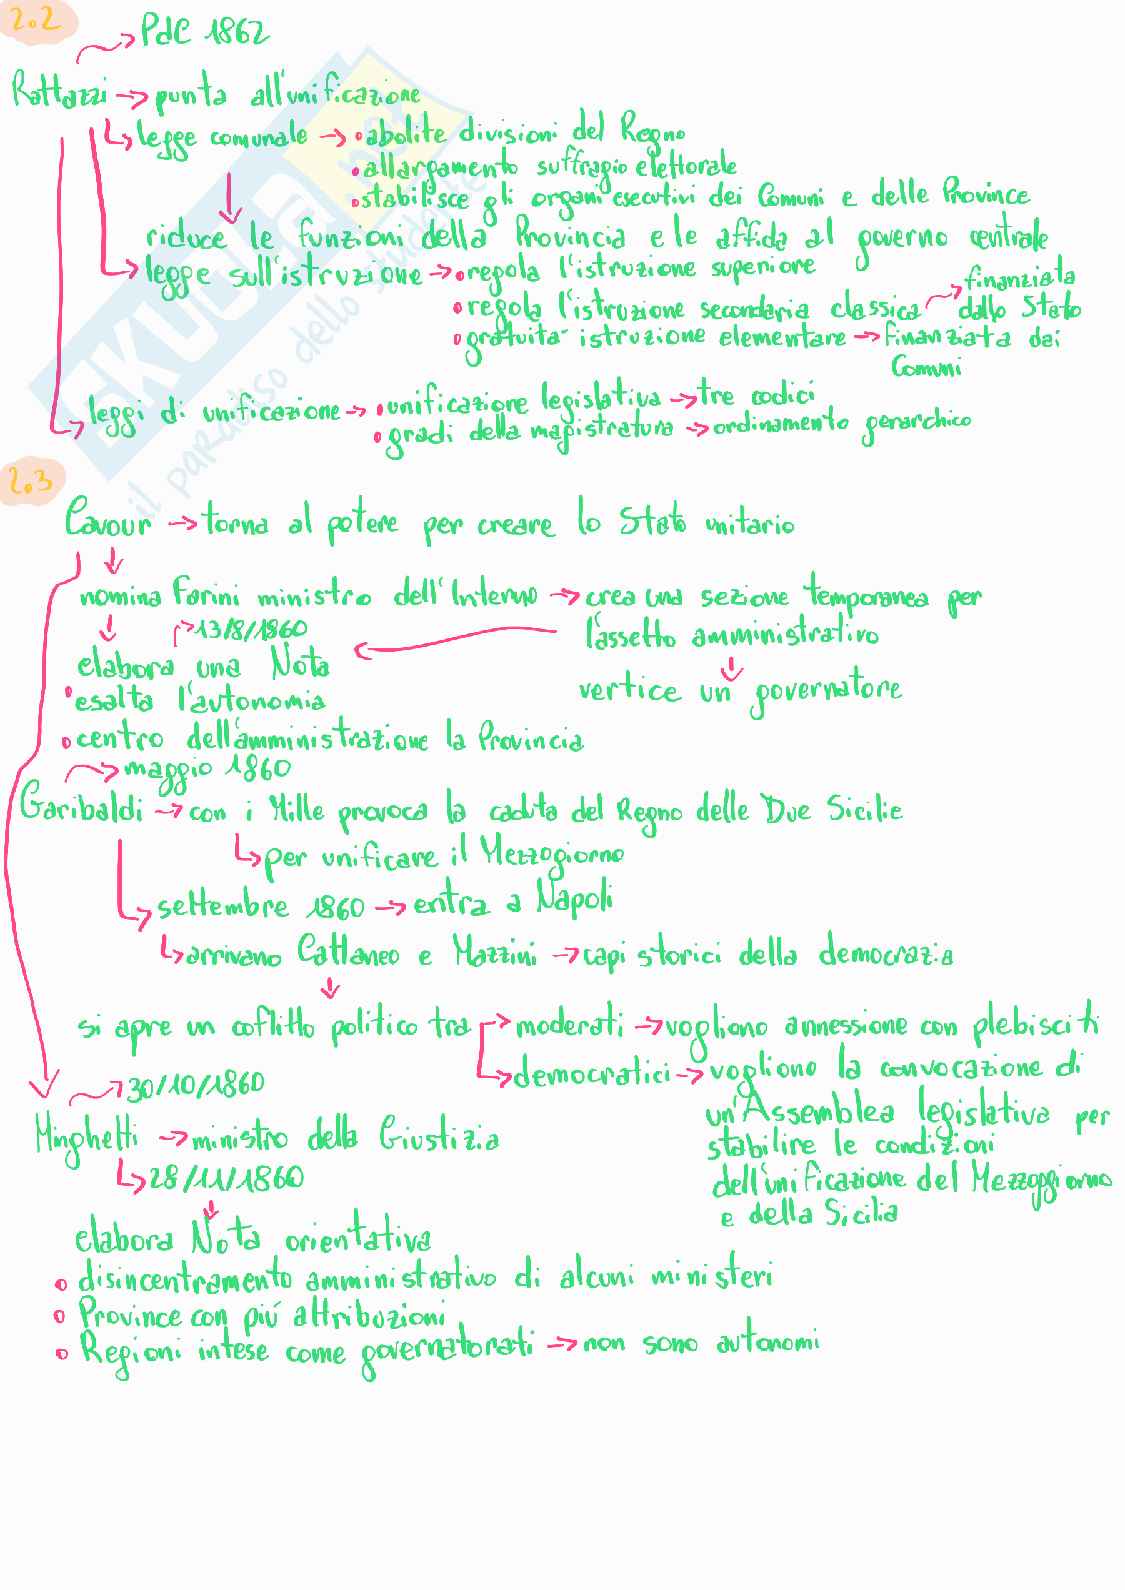 2.2
PdC 1862
Rattazzi → punta all'unificazione
legge comunale → • abolite divisioni del Regno
• allargamento suffragio elettorale
• stabilisce gli organi esecutivi dei Comuni e delle Province
riduce le funzioni della Provincia e le affida al governo centrale
legge sull'istruzione → • regola l'istruzione superiore
finanziata
• regola l'istruzione secondaria classica → dallo Stato
• gratuità istruzione elementare → finanziata dai
Comuni
leggi di unificazione → • unificazione legislativa → tre codici
• gradi della magistratura → ordinamento gerarchico
SKUOLA.net
il paradiso dello studente
2.3
Cavour → torna al potere per creare lo Stato unitario
nomina Farini ministro dell'Interno → crea una sezione temporanea per
13/8/1860
l'assetto amministrativo
elabora una Nota
vertice un governatore
• esalta l'autonomia
• centro dell'amministrazione la Provincia
maggio 1860
Garibaldi → con i Mille provoca la caduta del Regno delle Due Sicilie
per unificare il Mezzogiorno
settembre 1860 → entra a Napoli
arrivano Cattaneo e Mazzini → capi storici della democrazia
si apre un coflitto politico tra → moderati → vogliono annessione con plebisciti
democratici → vogliono la convocazione di
un'Assemblea legislativa per
stabilire le condizioni
dell'unificazione del Mezzoggiorno
e della Sicilia
30/10/1860
Minghetti → ministro della Giustizia
28/11/1860
elabora Nota orientativa
• disincentramento amministrativo di alcuni ministeri
• Province con più attribuzioni
• Regioni intese come governatorati → non sono autonomi